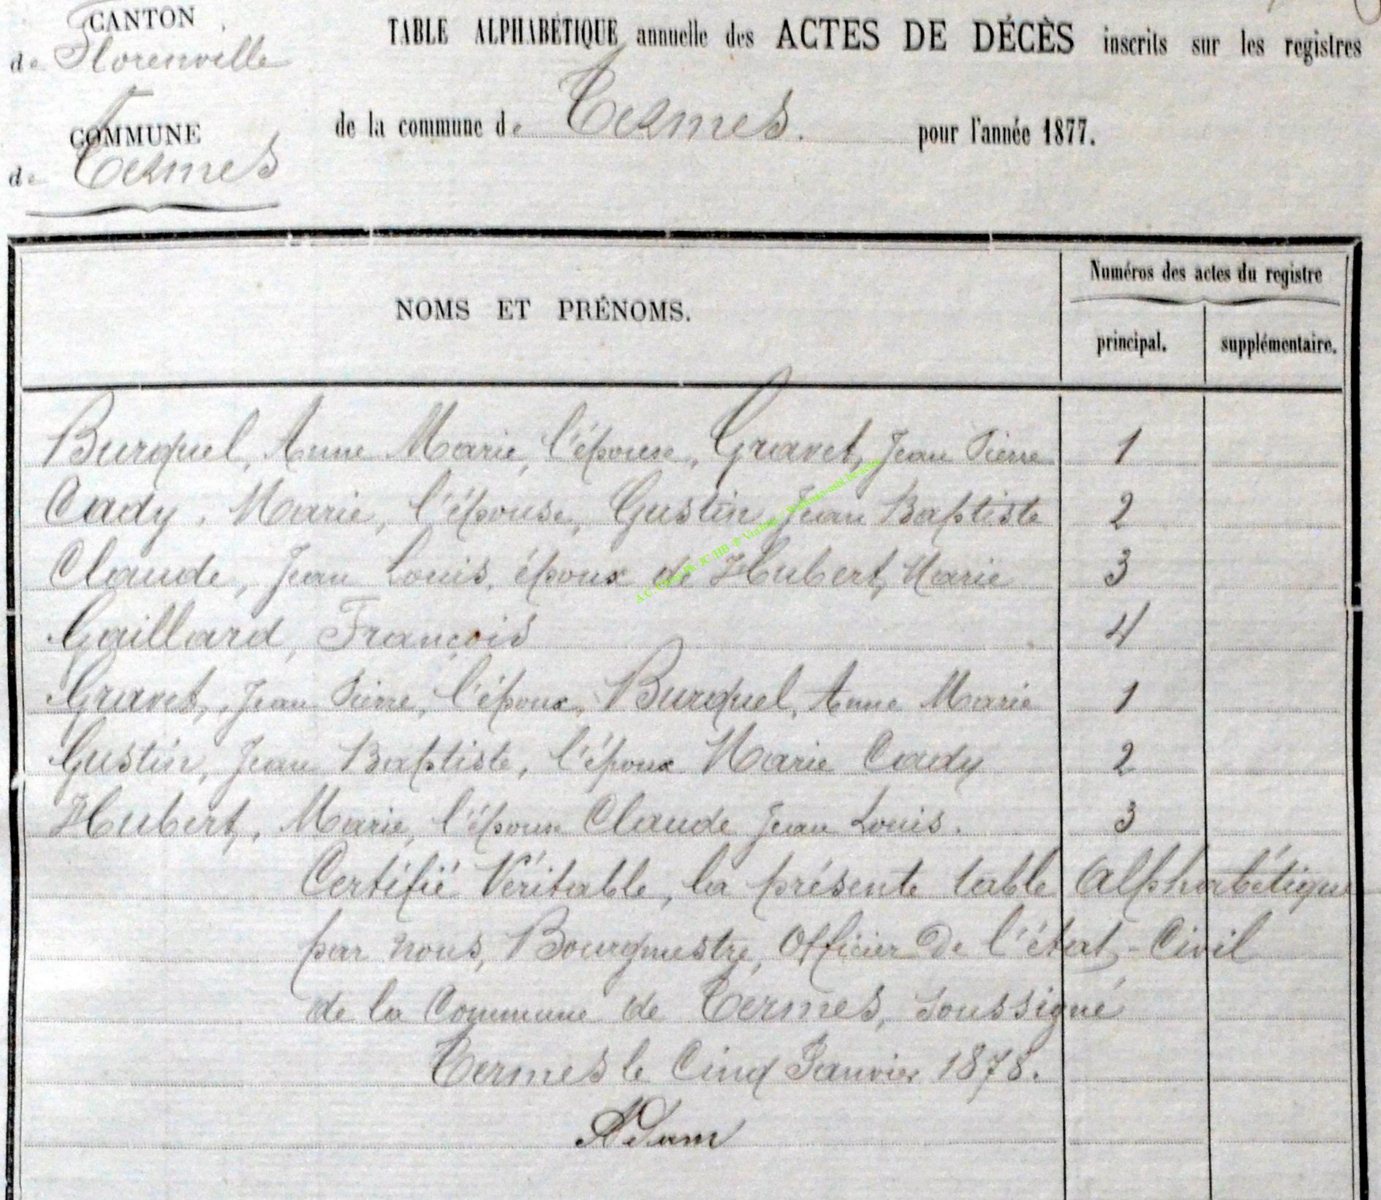 CANTON
de Florenville
COMMUNE
de Termes
TABLE ALPHABÉTIQUE annuelle des ACTES DE DÉCÈS inscrits sur les registres
de la commune de Termes. pour l'année 1877.
NOMS ET PRÉNOMS.
Numéros des actes du registre
principal. supplémentaire.
Burquel, Anne Marie, l'épouse, Gravet, Jean Pierre 1
Cady, Marie, l'épouse, Gustin, Jean Baptiste 2
Claude, Jean Louis, époux de Hubert, Marie 3
Gaillard, François 4
Gravet, Jean Pierre, l'époux, Burquel, Anne Marie 1
Gustin, Jean Baptiste, l'époux Marie Cady 2
Hubert, Marie, l'épouse Claude Jean Louis. 3
Certifié Véritable, la présente table Alphabétique
par nous, Bourgmestre, Officier De l'état-Civil
de la Commune de Termes, soussigné
Termes le Cinq Janvier 1878.
Adam